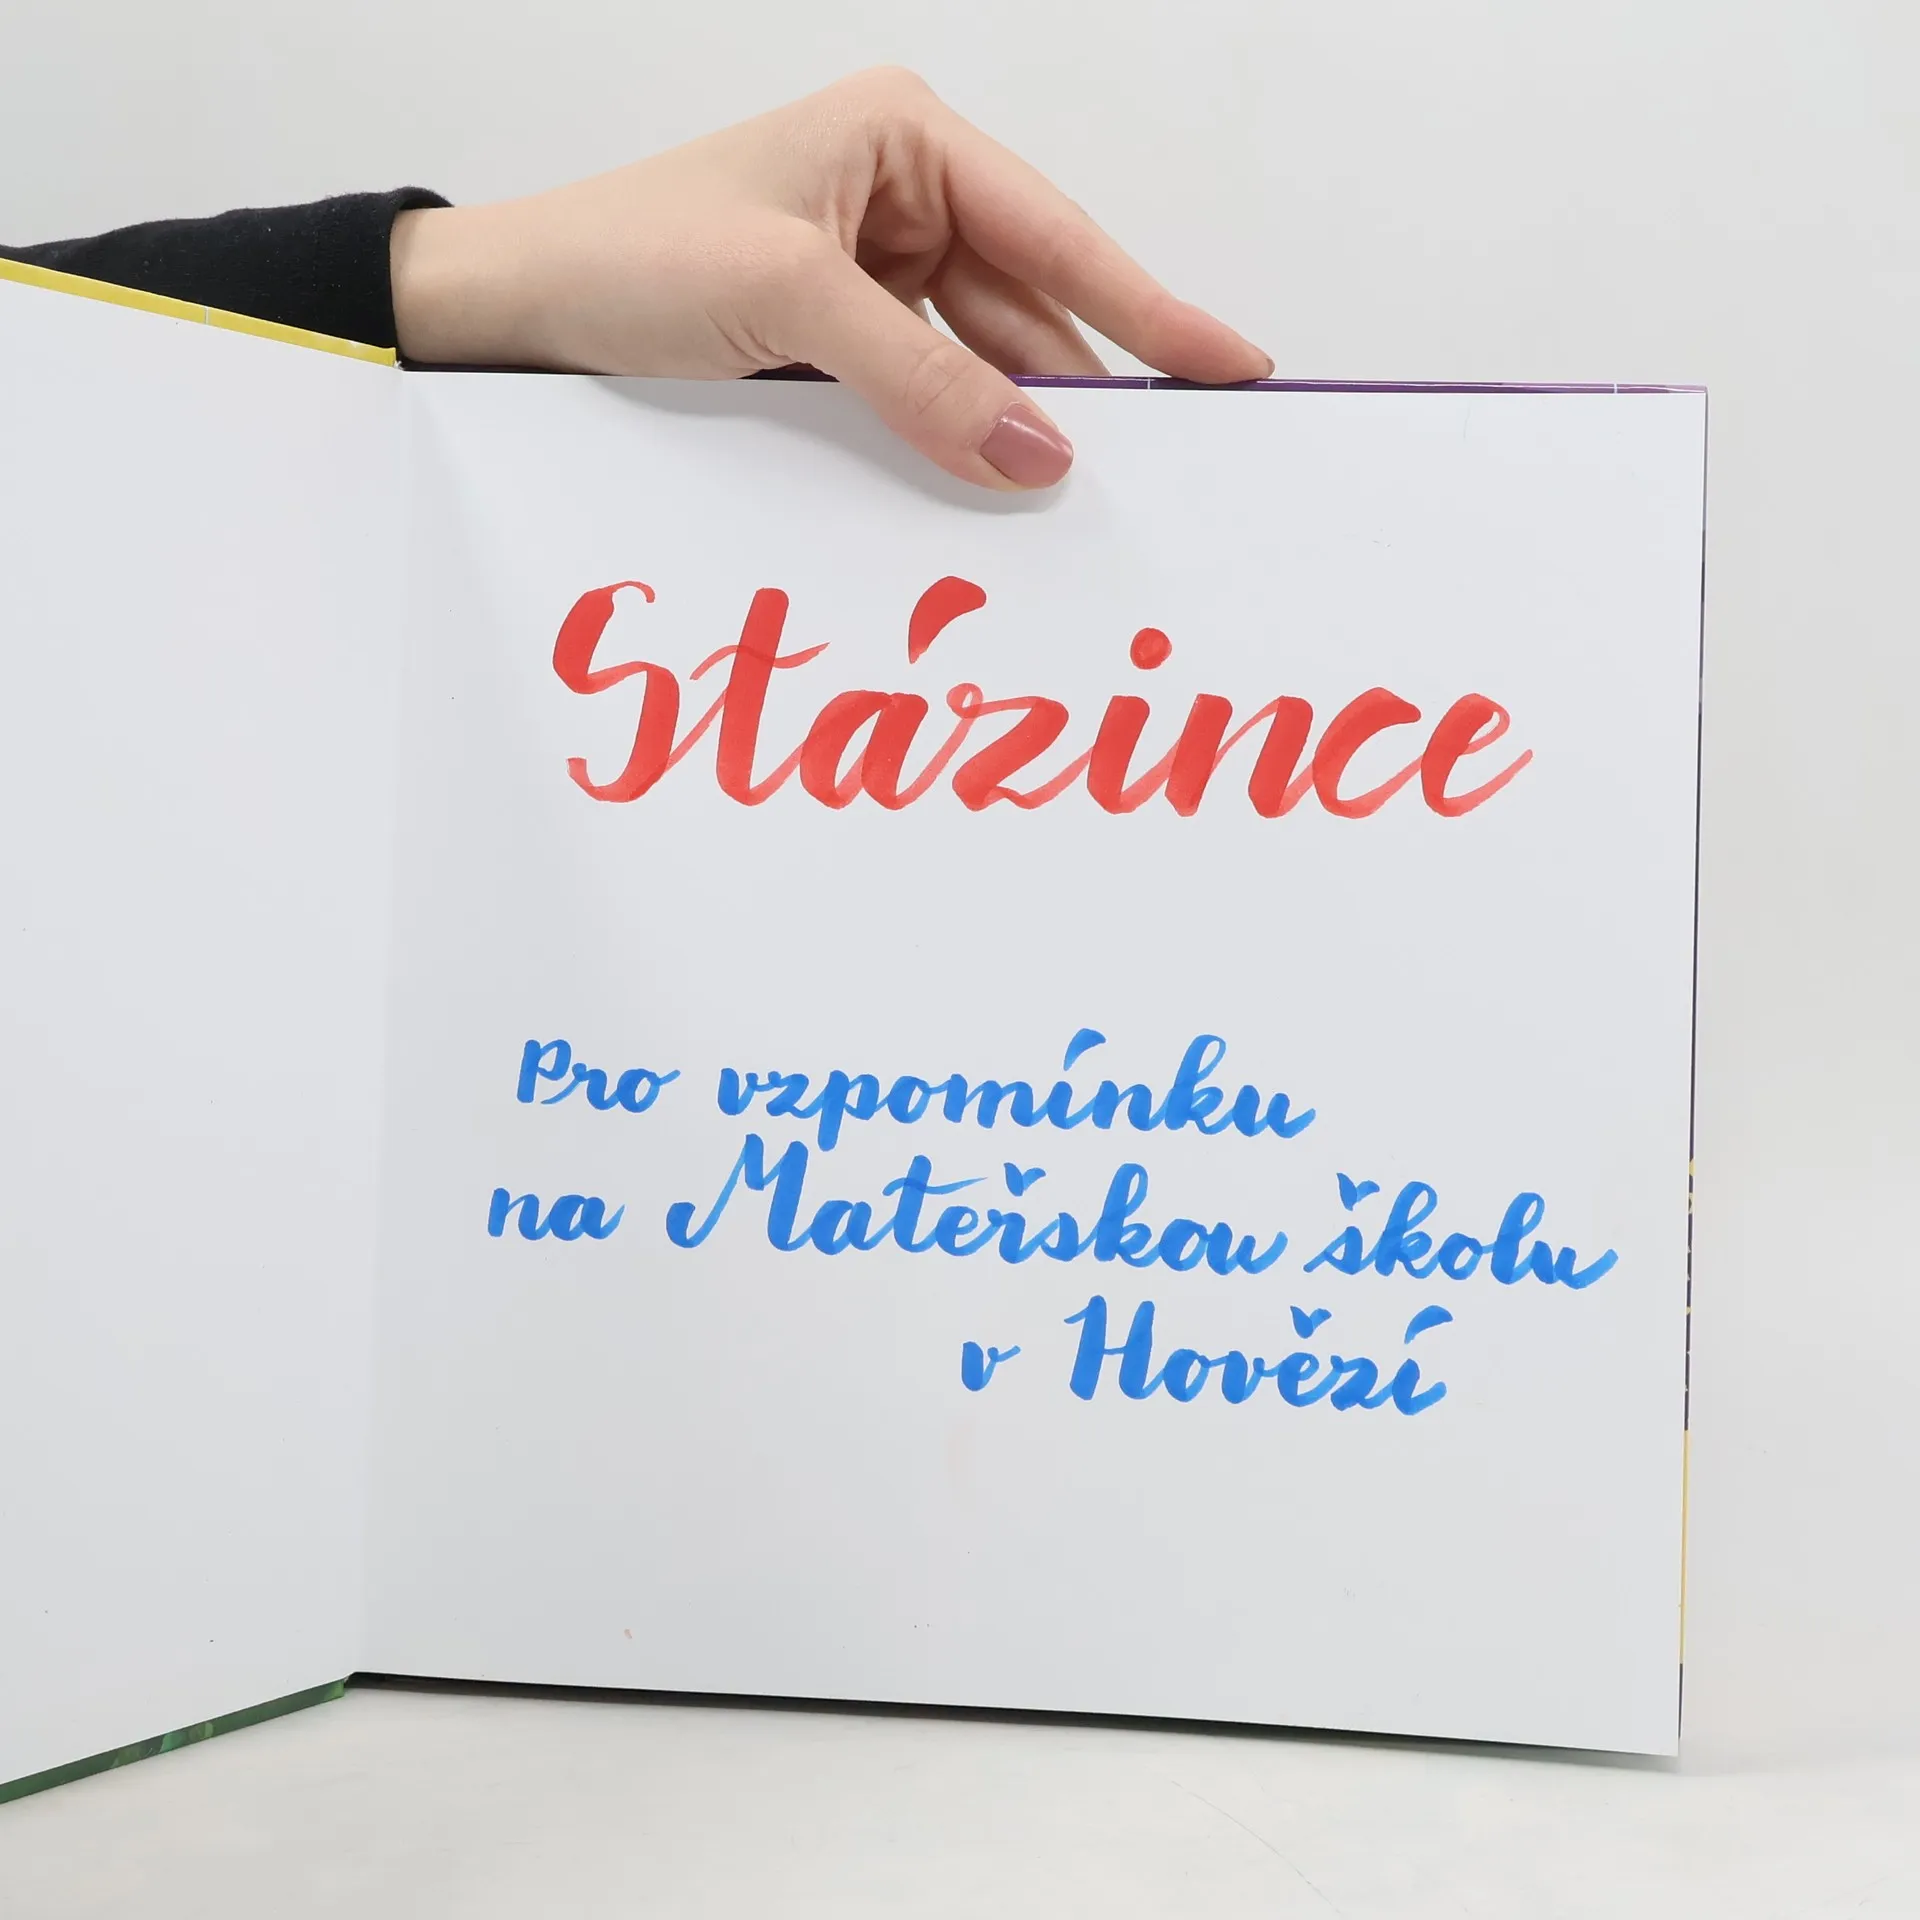 Stázince
Pro vzpomínku
na Mateřskou školu
v Hovězí